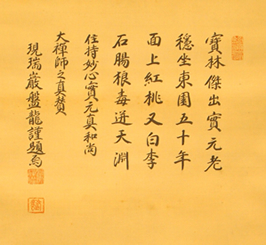 寶林傑出實元老
穩坐東園五十年
面上紅桃又白李
石腸根毒迸天淵
住持妙心實元真和尚
大禪師之真賛
現瑞巖盤龍謹題焉